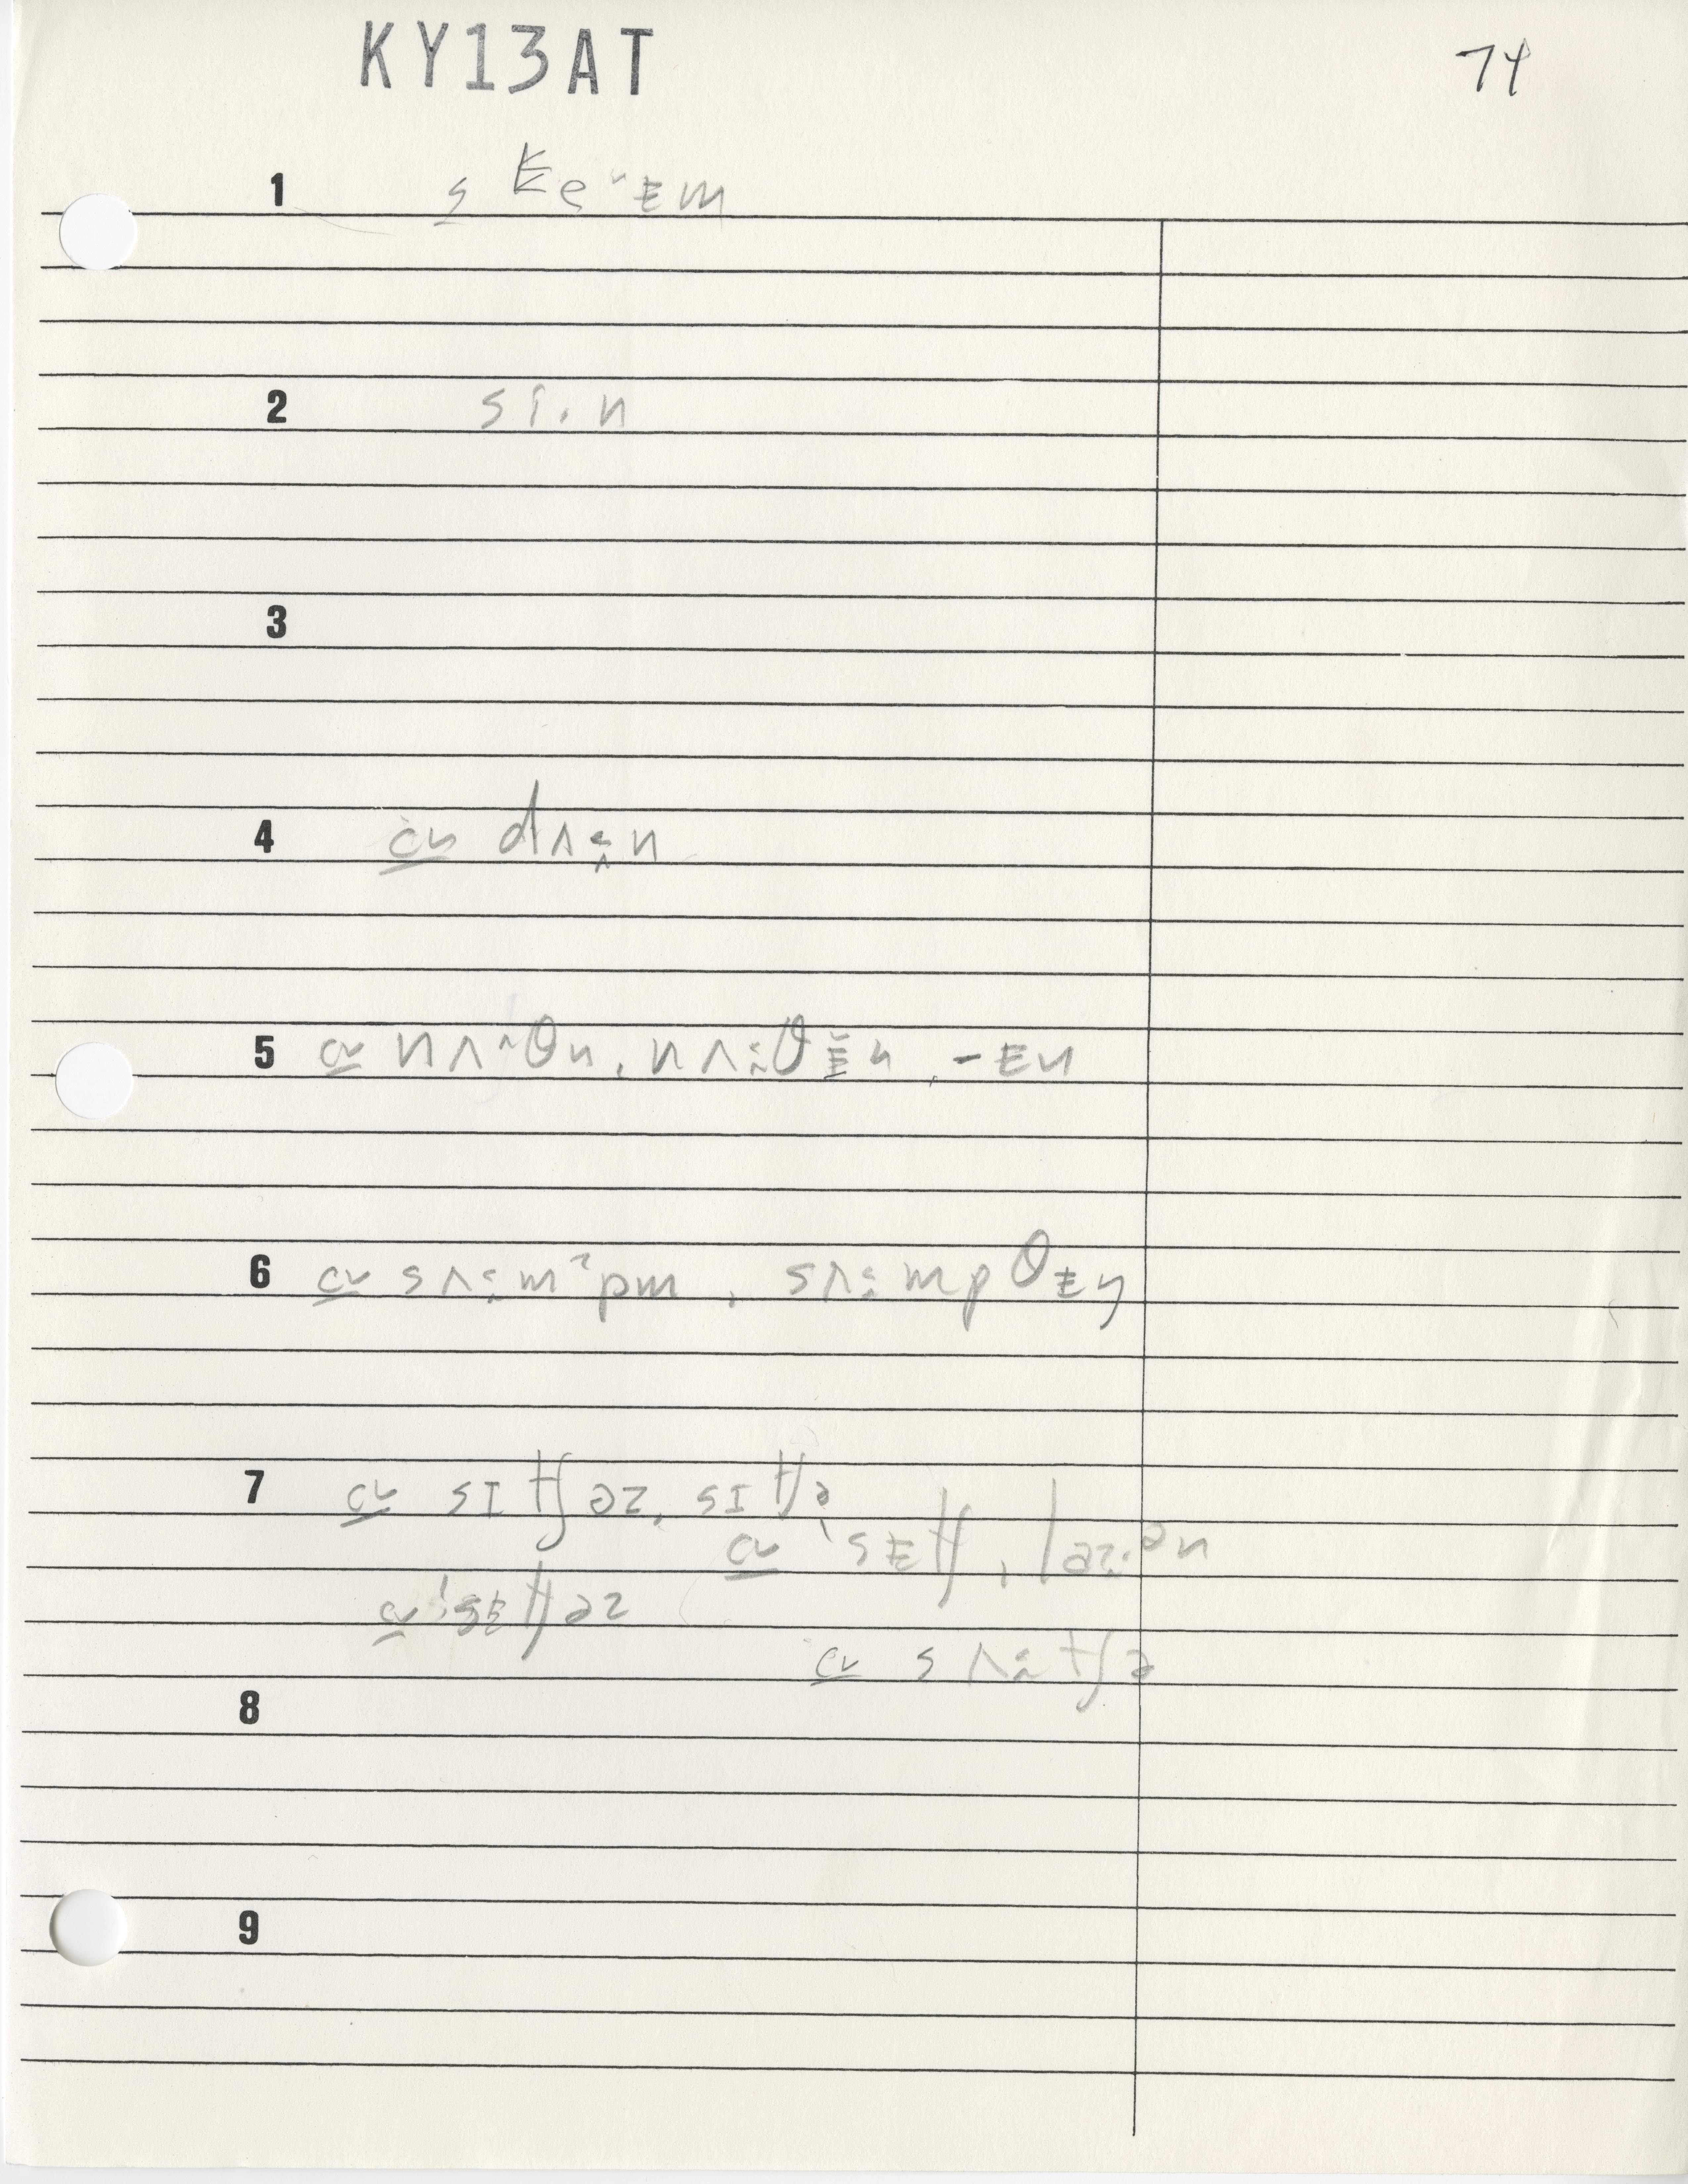 KY13AT
74
1 s keˑᵋm
2 si.n
3
4 cv dʌ.n
5 cv nʌᶺθn, nʌ:θɛ̆n, -ɛn
6 cv sʌ:mˀpm, sʌ:mpθɪŋ
7 cv sɪtʃəz, sɪtʃə
cv ˈsɛtʃ, |əz.ən
cv ˈsɛtʃəz
cv sʌ:tʃə
8
9